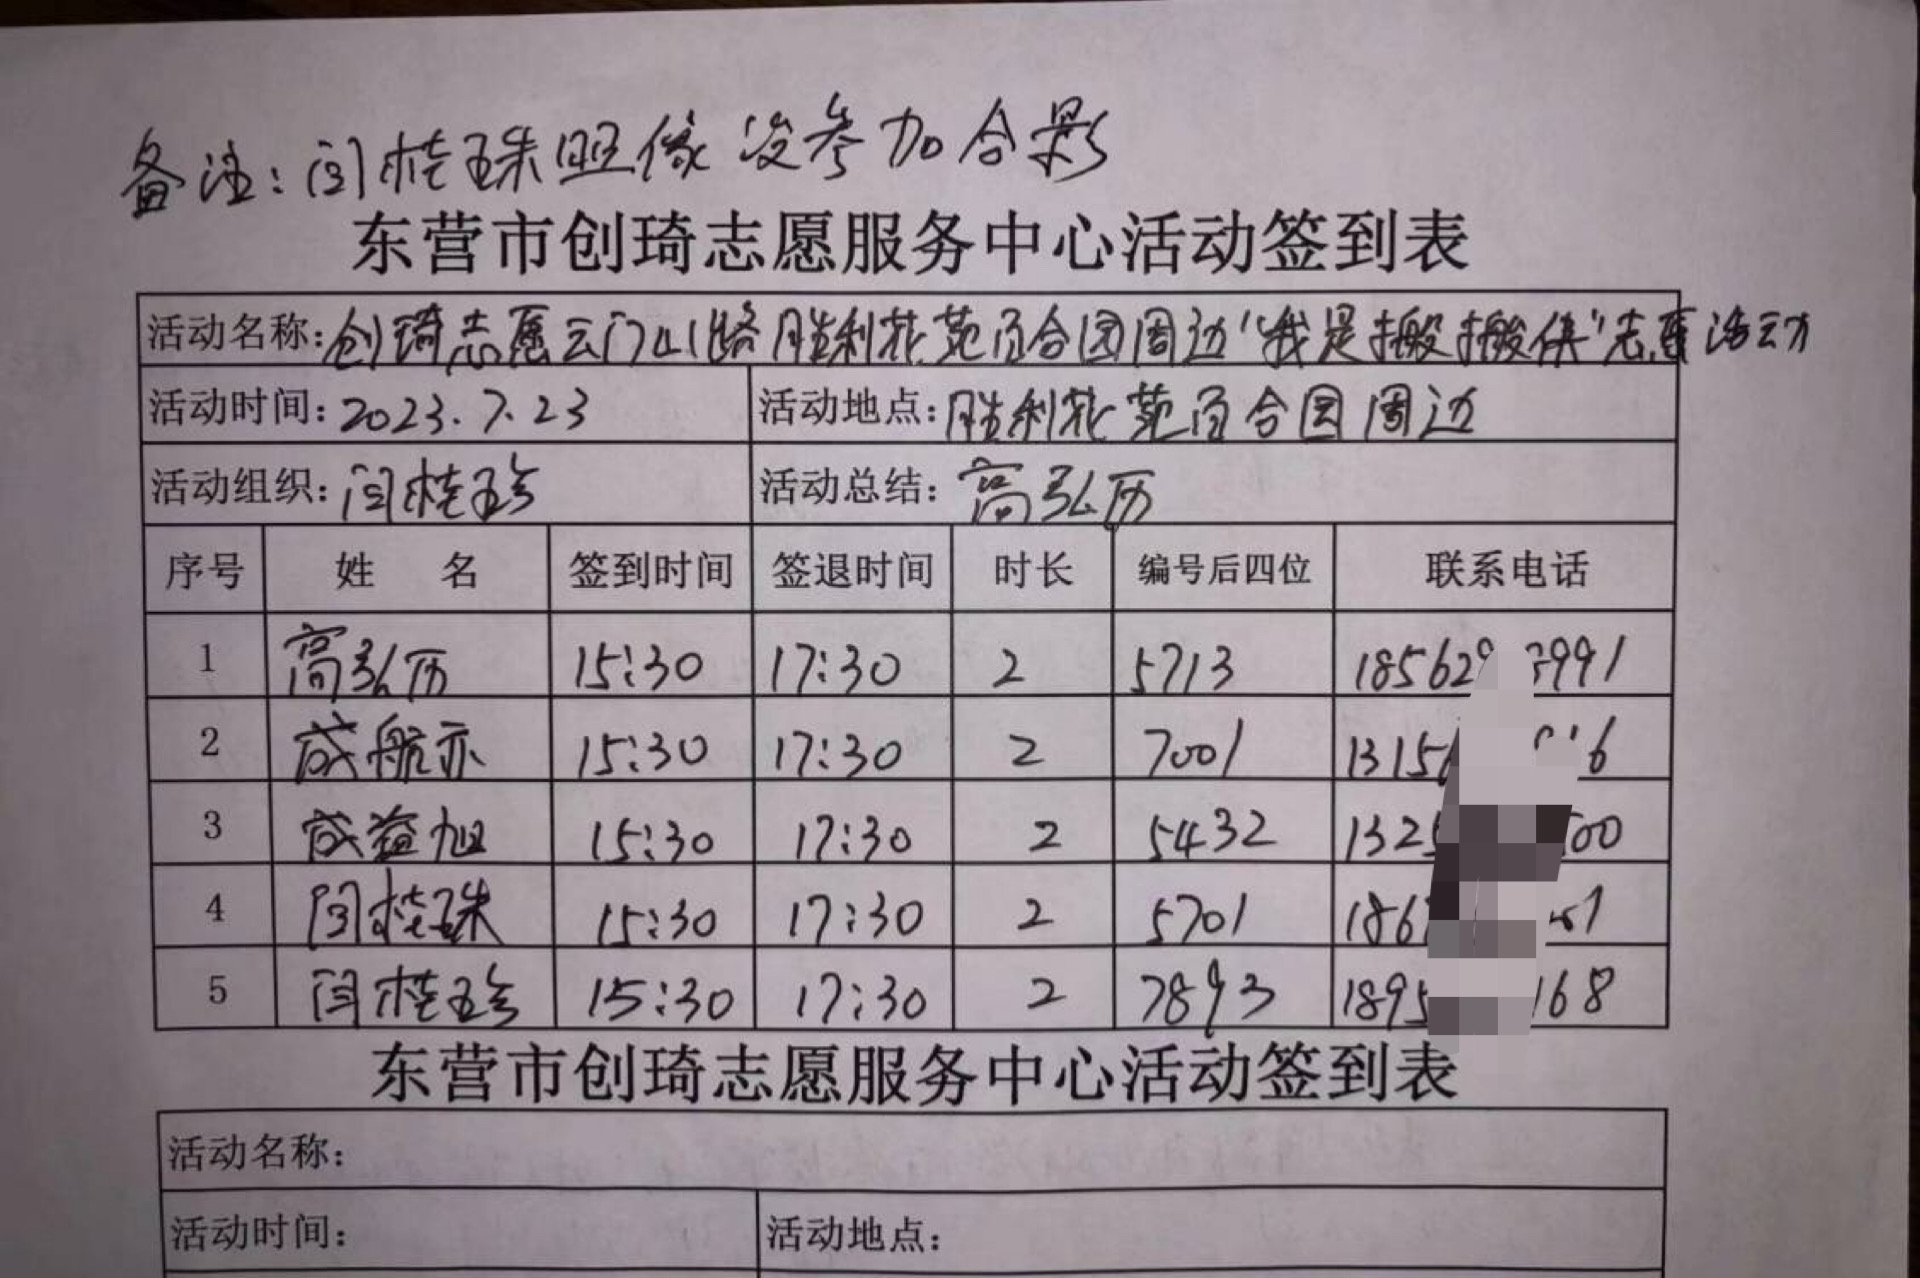 备注:闫桂珠照像没参加合影
东营市创琦志愿服务中心活动签到表
活动名称:创琦志愿云门山路胜利花苑百合园周边“我是搬搬侠”志愿活动
活动时间:2023.7.23 活动地点:胜利花苑百合园周边
活动组织:闫桂珍 活动总结:高弘历
序号 姓 名 签到时间 签退时间 时长 编号后四位 联系电话
1 高弘历 15:30 17:30 2 5713 18562 3991
2 成航亦 15:30 17:30 2 7001 1315 6
3 成益旭 15:30 17:30 2 5432 132 500
4 闫桂珠 15:30 17:30 2 5701 186 1
5 闫桂珍 15:30 17:30 2 7893 1895 168
东营市创琦志愿服务中心活动签到表
活动名称:
活动时间: 活动地点: